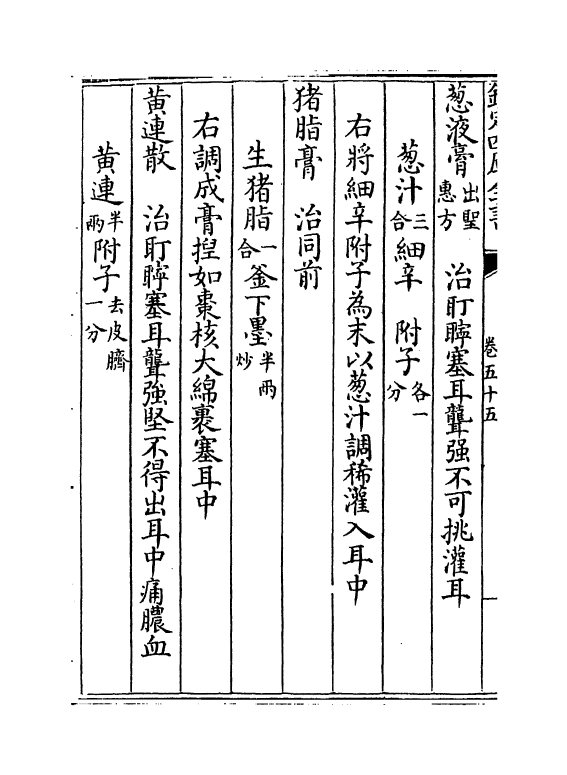 欽定四庫全書 卷五十五
葱液膏出聖惠方 治耵聹塞耳聾强不可挑灌耳
葱汁三合細辛 附子各一分
右將細辛附子為末以葱汁調稀灌入耳中
猪脂膏 治同前
生猪脂一合釜下墨半兩炒
右調成膏揑如棗核大綿裹塞耳中
黄連散 治耵聹塞耳聾強堅不得出耳中痛膿血
黄連半兩附子去皮臍一分